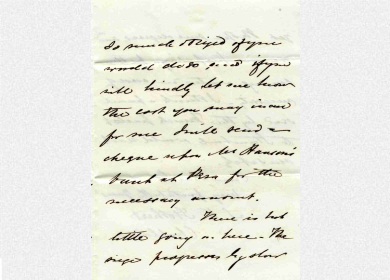 So much obliged if you
would do so and if you
will kindly let me know
the cost you may incur
for me I will send a
cheque upon Mr Hanson's
bank at Pera for the
necessary amount.
There is but
little going on here. The
siege progresses by slow